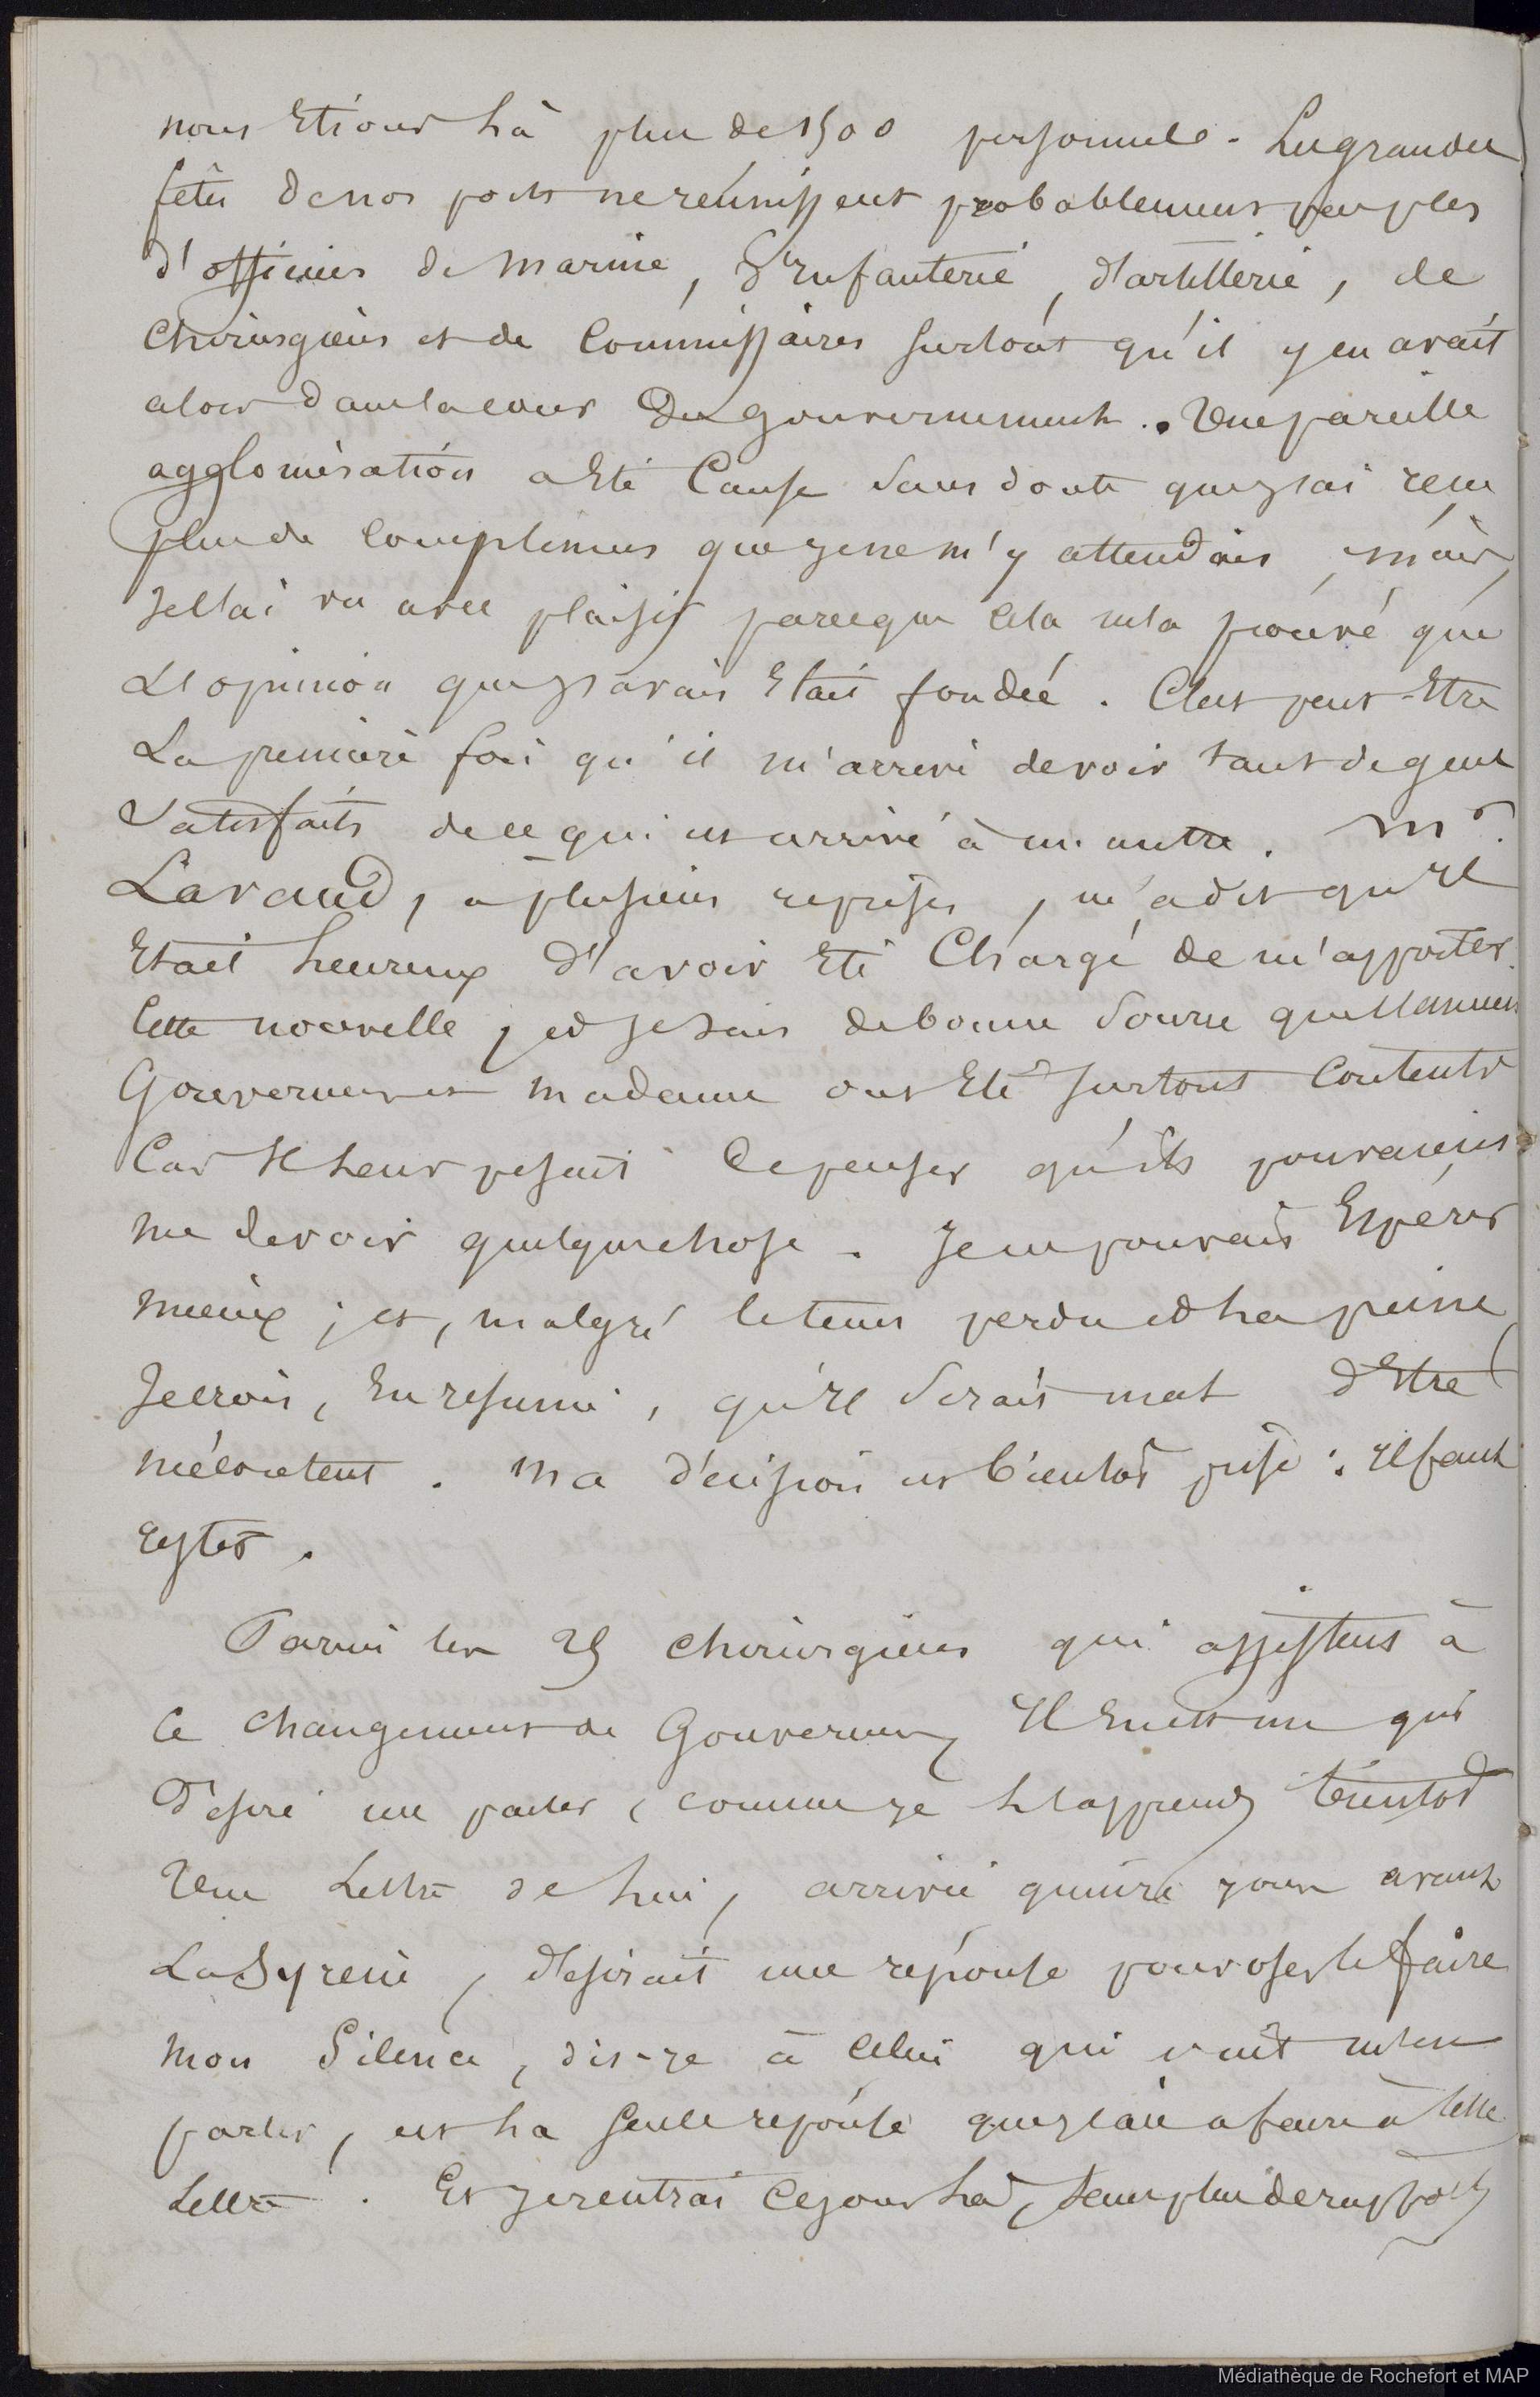 nous étions là plus de 1500 personnes. Les grandes
fêtes de nos ports ne réunissent probablement pas plus
d'officiers de marine, d'infanterie, d'artillerie, de
chirurgiens et de commissaires surtout qu'il y en avait
alors dans la cour du gouvernement. Une pareille
agglomération a été cause sans doute que j'ai reçu
plus de complimens que je ne m'y attendais, mais
je l'ai vu avec plaisir parceque cela m'a prouvé que
l'opinion que j'avais était fondée. C'est peut-être
la première fois qu'il m'arrive de voir tant de gens
satisfaits de ce qui est arrivé à un autre. Mr.
Lavaud, à plusieurs reprises, m'a dit qu'il
était heureux d'avoir été chargé de m'apporter
cette nouvelle, et je sais de bonne source que l'ancien
Gouverneur et madame ont été surtout contents
car il leur pesait de penser qu'ils pouvaient
me devoir quelque chose. Je ne pouvais espérer
mieux ; et, malgré le tems perdu et la peine
je crois, en résumé, qu'il serait mal d'être
mécontent. Ma décision est bientôt prise : il faut
rester.
Parmi les 25 chirurgiens qui assistent à
ce changement de Gouverneur, il en est un qui
désire me parler, comme je l'apprends bientôt
une lettre de lui, arrivée quinze jours avant
la Syrène, désirait une réponse pour oser le faire
mon silence, dis-je à celui qui vint m'en
parler, est la seule réponse que j'aie à faire à cette
lettre. Et je rentrai ce jour là, sans plus de rapports
Médiathèque de Rochefort et MAP